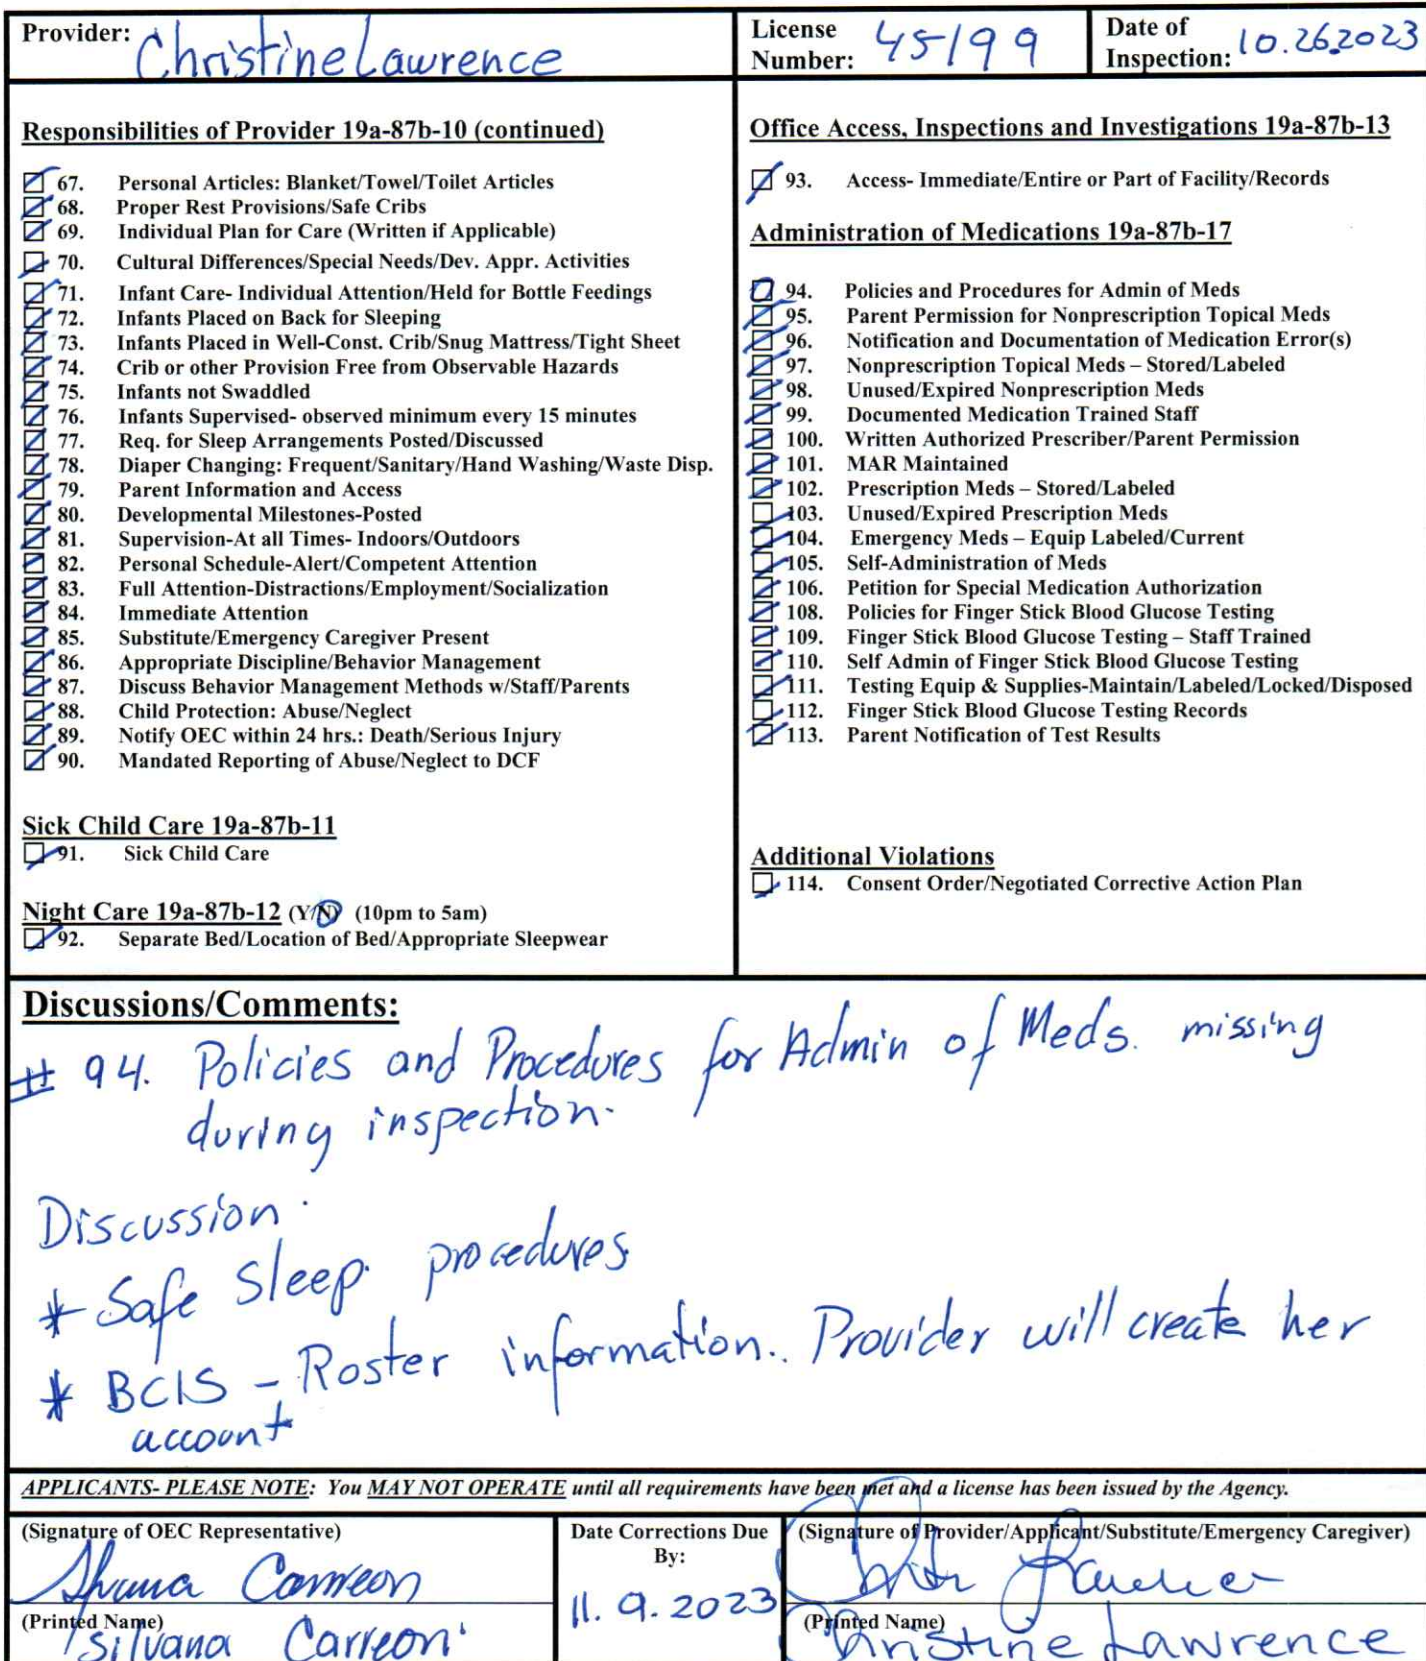 Provider: Christine Lawrence
License Number: 45199
Date of Inspection: 10.26.2023
Responsibilities of Provider 19a-87b-10 (continued)
67. Personal Articles: Blanket/Towel/Toilet Articles
68. Proper Rest Provisions/Safe Cribs
69. Individual Plan for Care (Written if Applicable)
70. Cultural Differences/Special Needs/Dev. Appr. Activities
71. Infant Care- Individual Attention/Held for Bottle Feedings
72. Infants Placed on Back for Sleeping
73. Infants Placed in Well-Const. Crib/Snug Mattress/Tight Sheet
74. Crib or other Provision Free from Observable Hazards
75. Infants not Swaddled
76. Infants Supervised- observed minimum every 15 minutes
77. Req. for Sleep Arrangements Posted/Discussed
78. Diaper Changing: Frequent/Sanitary/Hand Washing/Waste Disp.
79. Parent Information and Access
80. Developmental Milestones-Posted
81. Supervision-At all Times- Indoors/Outdoors
82. Personal Schedule-Alert/Competent Attention
83. Full Attention-Distractions/Employment/Socialization
84. Immediate Attention
85. Substitute/Emergency Caregiver Present
86. Appropriate Discipline/Behavior Management
87. Discuss Behavior Management Methods w/Staff/Parents
88. Child Protection: Abuse/Neglect
89. Notify OEC within 24 hrs.: Death/Serious Injury
90. Mandated Reporting of Abuse/Neglect to DCF
Sick Child Care 19a-87b-11
91. Sick Child Care
Night Care 19a-87b-12 (Y/N) (10pm to 5am)
92. Separate Bed/Location of Bed/Appropriate Sleepwear
Office Access, Inspections and Investigations 19a-87b-13
93. Access- Immediate/Entire or Part of Facility/Records
Administration of Medications 19a-87b-17
94. Policies and Procedures for Admin of Meds
95. Parent Permission for Nonprescription Topical Meds
96. Notification and Documentation of Medication Error(s)
97. Nonprescription Topical Meds – Stored/Labeled
98. Unused/Expired Nonprescription Meds
99. Documented Medication Trained Staff
100. Written Authorized Prescriber/Parent Permission
101. MAR Maintained
102. Prescription Meds – Stored/Labeled
103. Unused/Expired Prescription Meds
104. Emergency Meds – Equip Labeled/Current
105. Self-Administration of Meds
106. Petition for Special Medication Authorization
108. Policies for Finger Stick Blood Glucose Testing
109. Finger Stick Blood Glucose Testing – Staff Trained
110. Self Admin of Finger Stick Blood Glucose Testing
111. Testing Equip & Supplies-Maintain/Labeled/Locked/Disposed
112. Finger Stick Blood Glucose Testing Records
113. Parent Notification of Test Results
Additional Violations
114. Consent Order/Negotiated Corrective Action Plan
Discussions/Comments:
# 94. Policies and Procedures for Admin of Meds. missing
during inspection.
Discussion:
* Safe Sleep procedures
* BCIS - Roster information. Provider will create her
account
APPLICANTS- PLEASE NOTE: You MAY NOT OPERATE until all requirements have been met and a license has been issued by the Agency.
(Signature of OEC Representative)
Silvana Carreon
(Printed Name)
Silvana Carreon
Date Corrections Due
By:
11.9.2023
(Signature of Provider/Applicant/Substitute/Emergency Caregiver)
(Printed Name)
Christine Lawrence